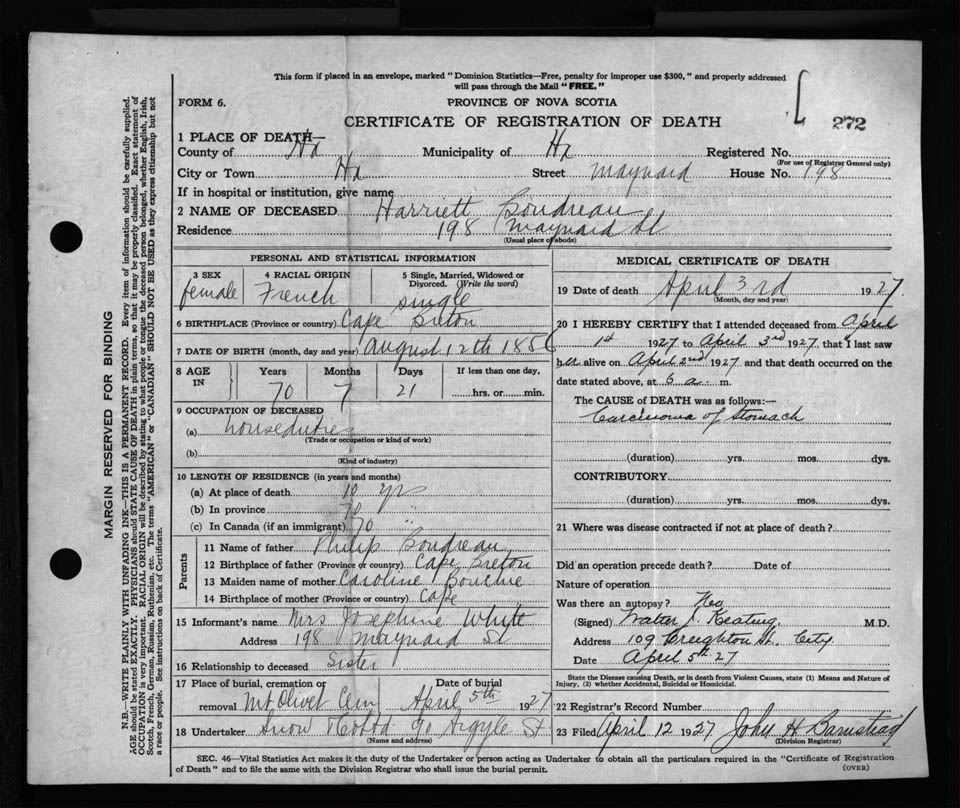 This form if placed in an envelope, marked "Dominion Statistics—Free, penalty for improper use $300," and properly addressed
will pass through the Mail "FREE."
FORM 6.
PROVINCE OF NOVA SCOTIA
CERTIFICATE OF REGISTRATION OF DEATH
272
1 PLACE OF DEATH—
County of Hx Municipality of Hx Registered No.
(For use of Registrar General only)
City or Town Hx Street Maynard House No. 198
If in hospital or institution, give name
2 NAME OF DECEASED Harriett Boudreau
Residence 198 Maynard St
(Usual place of abode)
PERSONAL AND STATISTICAL INFORMATION
3 SEX female
4 RACIAL ORIGIN French
5 Single, Married, Widowed or Divorced. (Write the word) single
6 BIRTHPLACE (Province or country) Cape Breton
7 DATE OF BIRTH (month, day and year) August 12th 1856
8 AGE IN Years Months Days If less than one day,
70 7 21 hrs. or min.
9 OCCUPATION OF DECEASED
(a) houseduties
(Trade or occupation or kind of work)
(b)
(Kind of industry)
10 LENGTH OF RESIDENCE (in years and months)
(a) At place of death 10 yrs
(b) In province 70 "
(c) In Canada (if an immigrant) 70 "
Parents
11 Name of father Philip Boudreau
12 Birthplace of father (Province or country) Cape Breton
13 Maiden name of mother Caroline Bouchie
14 Birthplace of mother (Province or country) Cape
15 Informant's name Mrs Josephine White
Address 198 Maynard St
16 Relationship to deceased Sister
17 Place of burial, cremation or removal Mt Olivet Cem
Date of burial April 5th 1927
18 Undertaker Snow & Co Ltd 90 Argyle St
(Name and address)
MEDICAL CERTIFICATE OF DEATH
19 Date of death April 3rd 1927
(Month, day and year)
20 I HEREBY CERTIFY that I attended deceased from April
1st 1927 to April 3rd 1927, that I last saw
her alive on April 2nd 1927 and that death occurred on the
date stated above, at 6 a. m.
The CAUSE of DEATH was as follows:—
Carcinoma of Stomach
(duration) yrs. mos. dys.
CONTRIBUTORY
(duration) yrs. mos. dys.
21 Where was disease contracted if not at place of death?
Did an operation precede death? Date of
Nature of operation
Was there an autopsy?
(Signed) Walter J. Keating, M.D.
Address 109 Creighton St. City
Date April 5th 27
State the Disease causing Death, or in death from Violent Causes, state (1) Means and Nature of
Injury, (2) whether Accidental, Suicidal or Homicidal.
22 Registrar's Record Number
23 Filed April 12 1927 John H Barnstead
(Division Registrar)
SEC. 46—Vital Statistics Act makes it the duty of the Undertaker or person acting as Undertaker to obtain all the particulars required in the "Certificate of Registration
of Death" and to file the same with the Division Registrar who shall issue the burial permit.
(OVER)
MARGIN RESERVED FOR BINDING
N.B.—WRITE PLAINLY WITH UNFADING INK—THIS IS A PERMANENT RECORD. Every item of information should be carefully supplied.
AGE should be stated EXACTLY. PHYSICIANS should STATE CAUSE OF DEATH in plain terms, so that it may be properly classified. Exact statement of
OCCUPATION is very important. RACIAL ORIGIN will be described by stating to what people or tongue the deceased person belonged, whether English, Irish,
Scotch, French, German, Russian, Ruthenian, etc. The terms "AMERICAN" or "CANADIAN" SHOULD NOT BE USED as they express citizenship but not
a race or people. See instructions on back of Certificate.